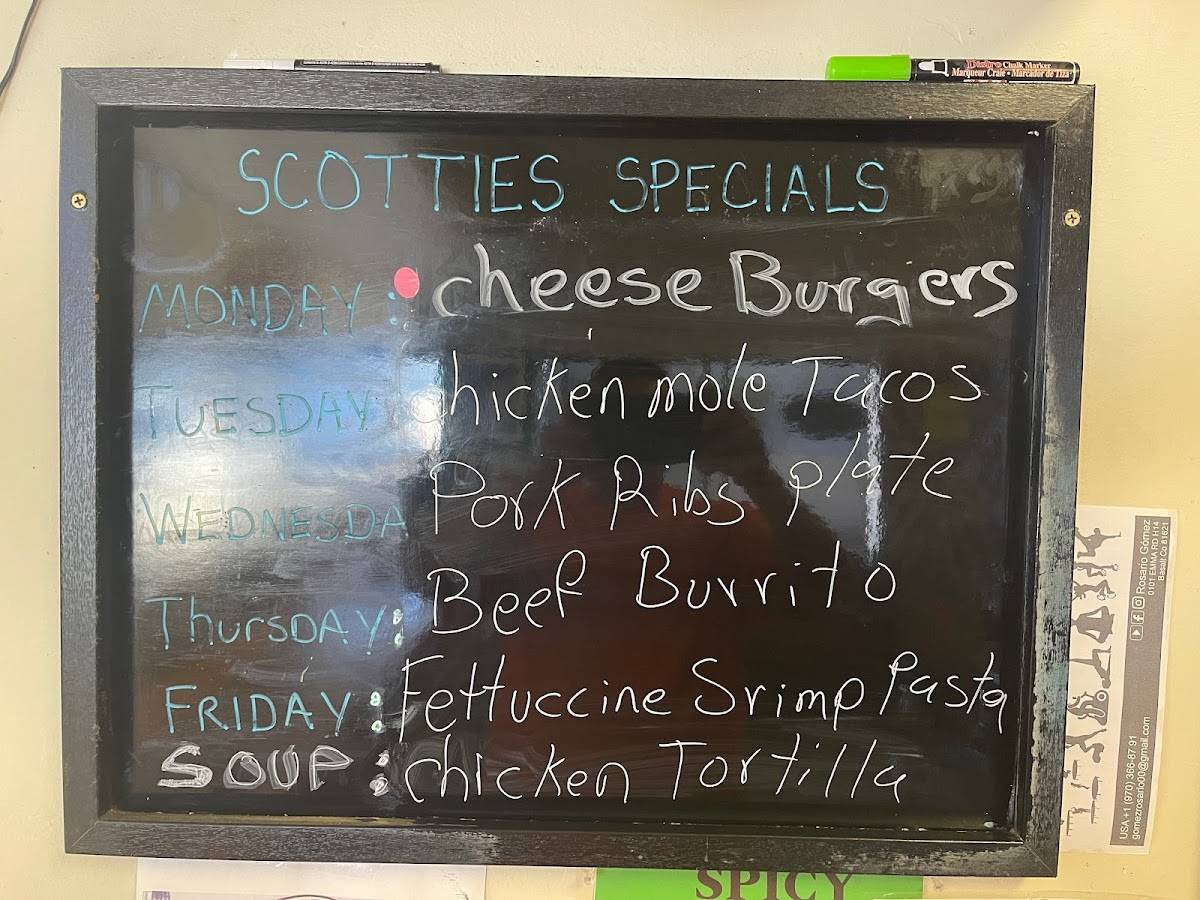 Distro Chalk Marker
Marqueur Craie • Marcador de Tiza
SCOTTIES SPECIALS
MONDAY : cheese Burgers
TUESDAY : chicken mole Tacos
WEDNESDA Pork Ribs plate
ThursDAY : Beef Burrito
FRIDAY : Fettuccine Srimp Pasta
SOUP : chicken Tortilla
Rosario Gómez
0101 EMMA RD H14
Basalt Co 81621
USA +1 (970) 366-87 91
gomezrosario00@gmail.com
SPICY